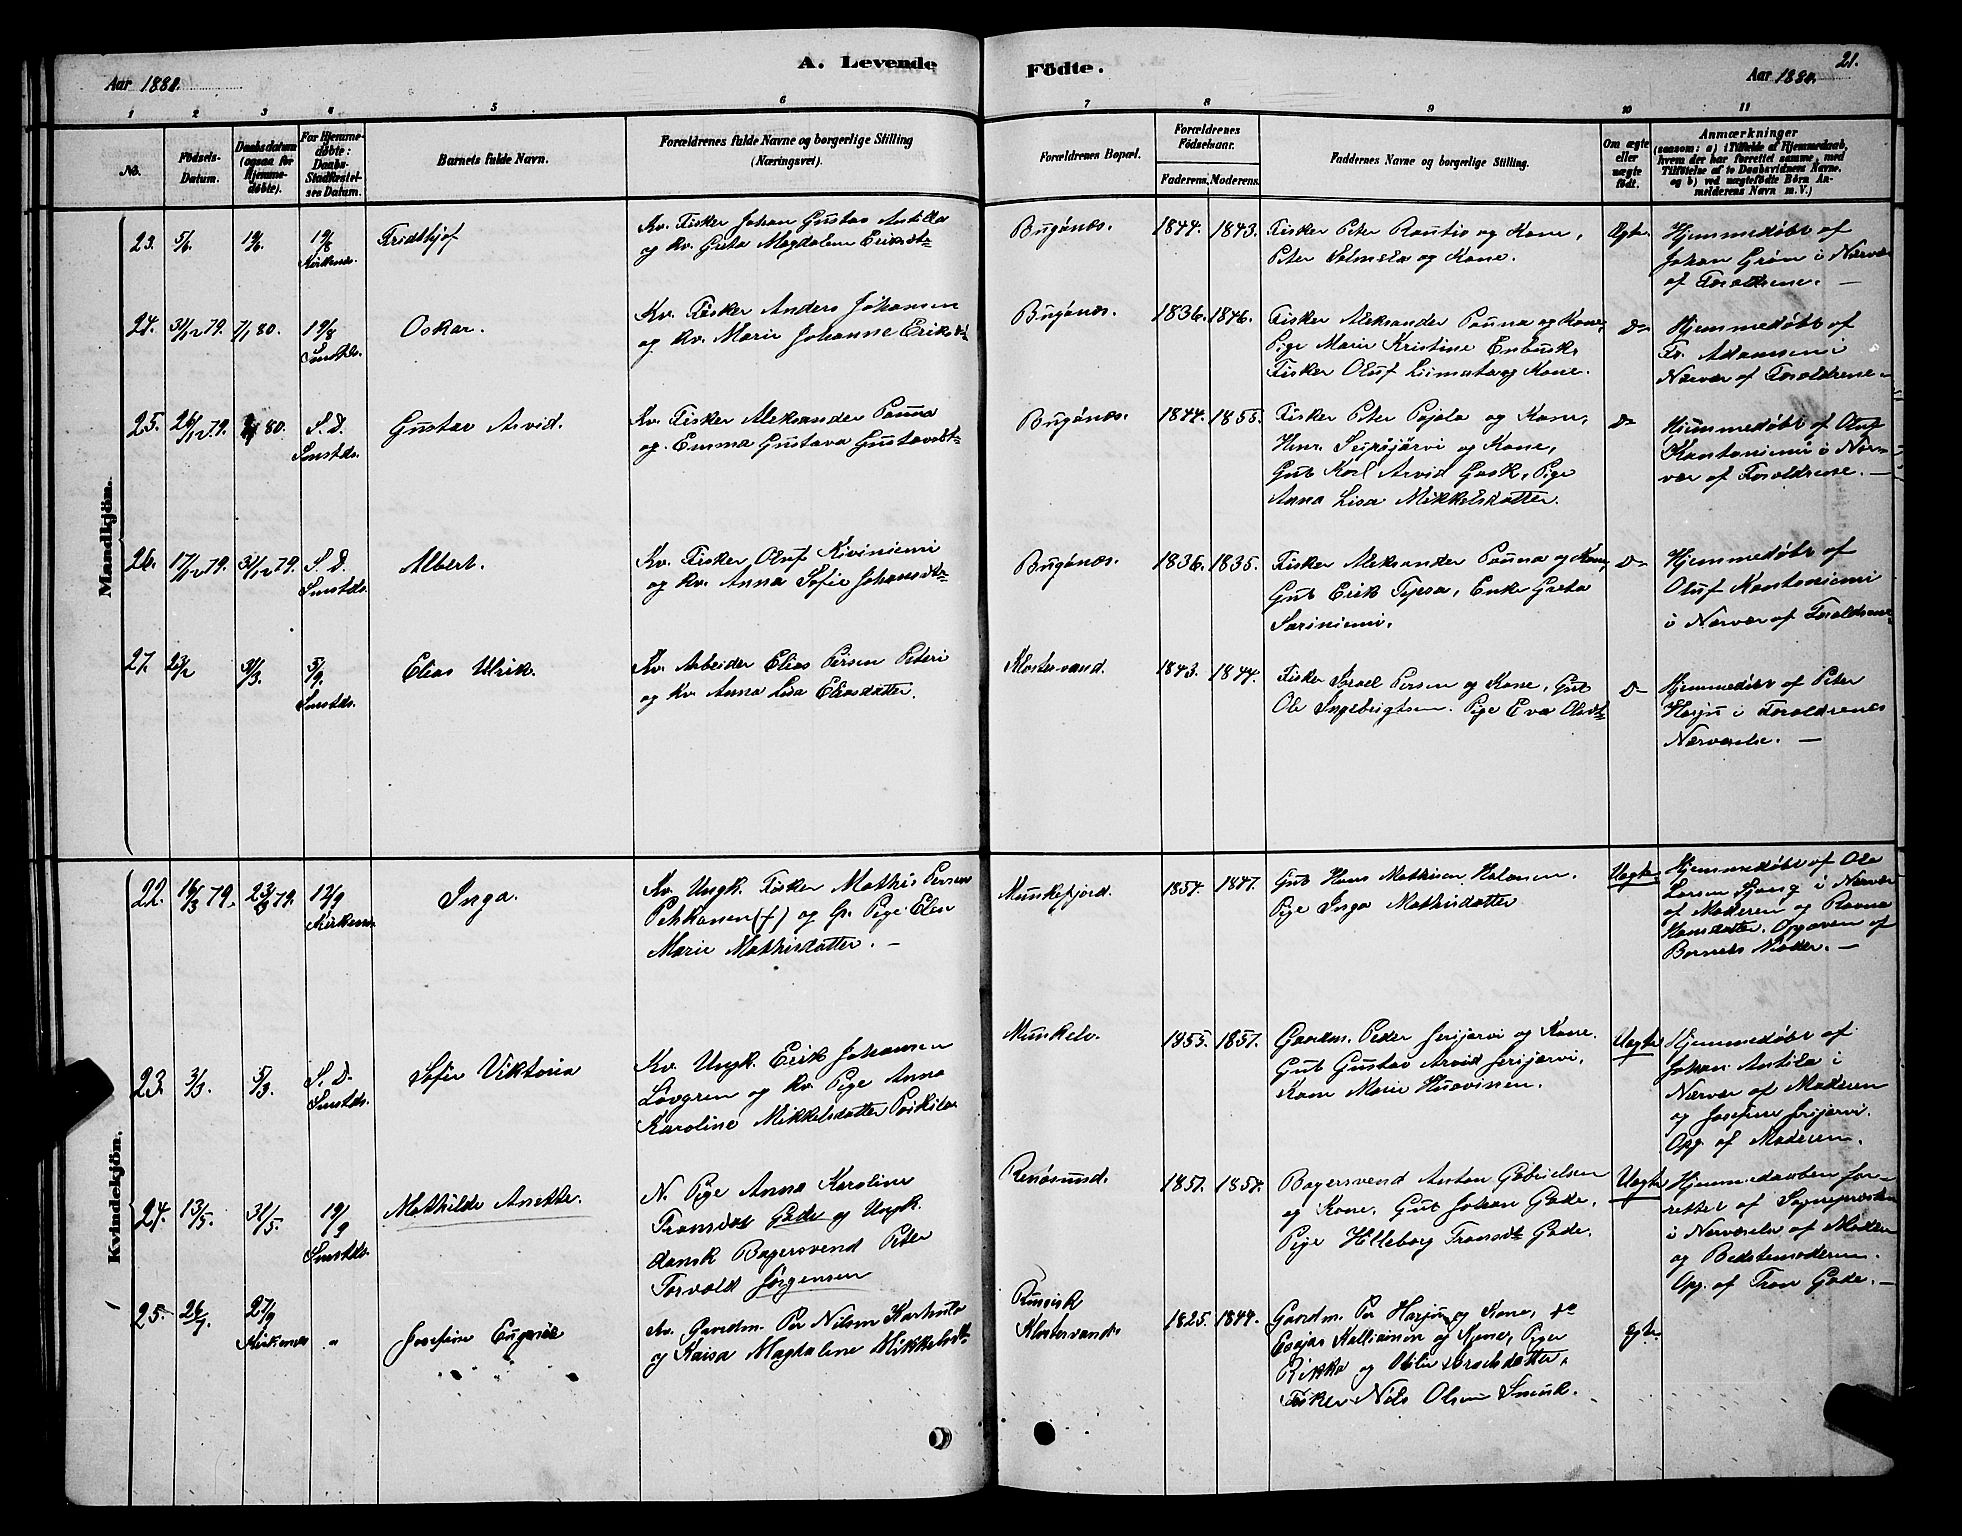 A. Levende
Födte.
21.
Aar 1880.
Aar 1880.
1 2 3 4 5 6 7 8 9 10 11
No.
Födsels-
Datum.
Daabsdatum
(ogsaa for
Hjemme-
døbte).
For Hjemme-
døbte:
Daabs-
Stadfæstel-
ses Datum.
Barnets fulde Navn.
Forældrenes fulde Navne og borgerlige Stilling
(Næringsvei).
Forældrenes Bopæl.
Forældrenes
Födselsaar.
Faderens. Moderens.
Faddernes Navne og borgerlige Stilling.
Om ægte
eller
uægte
født.
Anmærkninger
(saasom: a) i Tilfælde af Hjemmedaab,
hvem der har forrettet samme, med
Tilföielse af to Daabsvidners Navne.
og b) ved uægtefødte Börn An-
melderens Navn m. V.)
Mandkjön.
23. 5/6 19/8 Kirkenes. Fridthjof
Kv. Fisker Johan Gustav Antilla
og Kv. Greta Magdalene Eriksdt.
Bugönæs. 1844. 1843.
Fisker Peter Rautio og Kone,
Peter Salmela og Kone.
Ægte.
Hjemmedøbt af
Johan Grøn i Nærvær
af Forældrene. —
24. 31/12 79. 1/1 80. 19/8 Smstds. Oskar.
Kv. Fisker Anders Johansen
og Kv. Marie Johanne Eriksdt.
Bugönæs. 1836. 1846.
Fisker Aleksander Pauna og Kone,
Pige Marie Kristine Enbusk,
Fisker Oluf Liimata og Kone.
Do
Hjemmedøbt af
Fr. Adamsen i
Nærvær af Forældrene.—
25. 26/12 79. 80. S. D. Smstds. Gustav Arvid.
Kv. Fisker Aleksander Pauna
og Emma Gustava Gustavsdt.
Bugönæs. 1844. 1855.
Fisker Peter Pajala og Kone,
Henr. Seipäjärvi og Kone,
Gut Karl Arvid Gask, Pige
Anna Lisa Mikkelsdatter.
Do
Hjemmedøbt af Oluf
Kantoniemi i Nær-
vær af Forældrene. —
26. 17/12 79. 31/12 79. S. D. Smstds. Albert.
Kv. Fisker Oluf Kiviniemi
og Kv. Anna Sofie Johansdt.
Bugönæs. 1836. 1835.
Fisker Aleksander Pauna og Kone,
Gut Erik Tepsa, Enke Greta
Sariniemi.
Do
Hjemmedøbt af
Oluf Kantoniemi
i Nærvær af Forældrene
27. 23/2 31/3. 5/9. Smstds. Elias Ulrik.
Kv. Arbeider Elias Persen Peteri
og Kv. Anna Lisa Eliasdatter.
Klostervand. 1843. 1844.
Fisker Israel Persen og Kone, Gut
Ole Ingebrigtsen. Pige Eva Olsdt.
Do
Hjemmedøbt af Peter
Harju i Forældrenes
Nærværelse. —
Kvindekjön.
22. 16/3 79. 23/3 79. 12/9 Kirkenes Inga.
Kv. Ungk. Fisker Mathis Persen
Pekkanen (+) og Gr. Pige Elen
Marie Mathisdatter. —
Munkefjord. 1854. 1847.
Gut Hans Mathisen Halonen.
Pige Inga Mathisdatter
Uægte
Hjemmedøbt af Ole
Larsen Bjerg i Nærvær
af Moderen og Ravna
Hansdatter. Opgaven af
Barnets Moder. —
23. 3/3. 5/3. S. D. Smstds. Sofie Viktoria
Kv. Ungk. Erik Johansen
Lovgren og Kv. Pige Anna
Karoline Mikkelsdatter Poikila
Munkelv. 1855. 1857.
Gaardm. Peder Jerijærvi og Kone.
Gut Gustav Arvid Jerijærvi,
Kone Marie Huovinen.
Uægte
Hjemmedøbt af
Johan Antila i
Nærvær af Moderen
og Josefine Jerijærvi.
Opg. af Moderen.
24. 13/5. 31/5. 19/9 Smstds. Mathilde Anette.
N. Pige Anna Karoline
Transdat Gade og Ungk.
dansk Bagersvend Peter
Torvald Jørgensen
Renøsund. 1857. 1854.
Bagersvend Anton Gabrielsen
og Kone, Gut Johan Gade,
Pige Helleborg Transdt Gade.
Uægte
Hjemmedaaben for-
rettet af Sognepræsten
i Nærværelse af Moder
og Bedstemoderen.
Opg. af Tran Gade. —
25. 26/7. 27/9 Kirkenes " Josefine Eugenie
Kv. Gaardm. Per Nilsen Karhula
og Kaisa Magdalene Mikkelsdt.
Russisk
Klostervand. 1825. 1844.
Gaardm. Per Harju og Kone, do
Esajas Kalliainen og Kone, Piger
Rikka og Otilie Israelsdatter,
Fisker Nils Olsen Smuk.
Ægte.